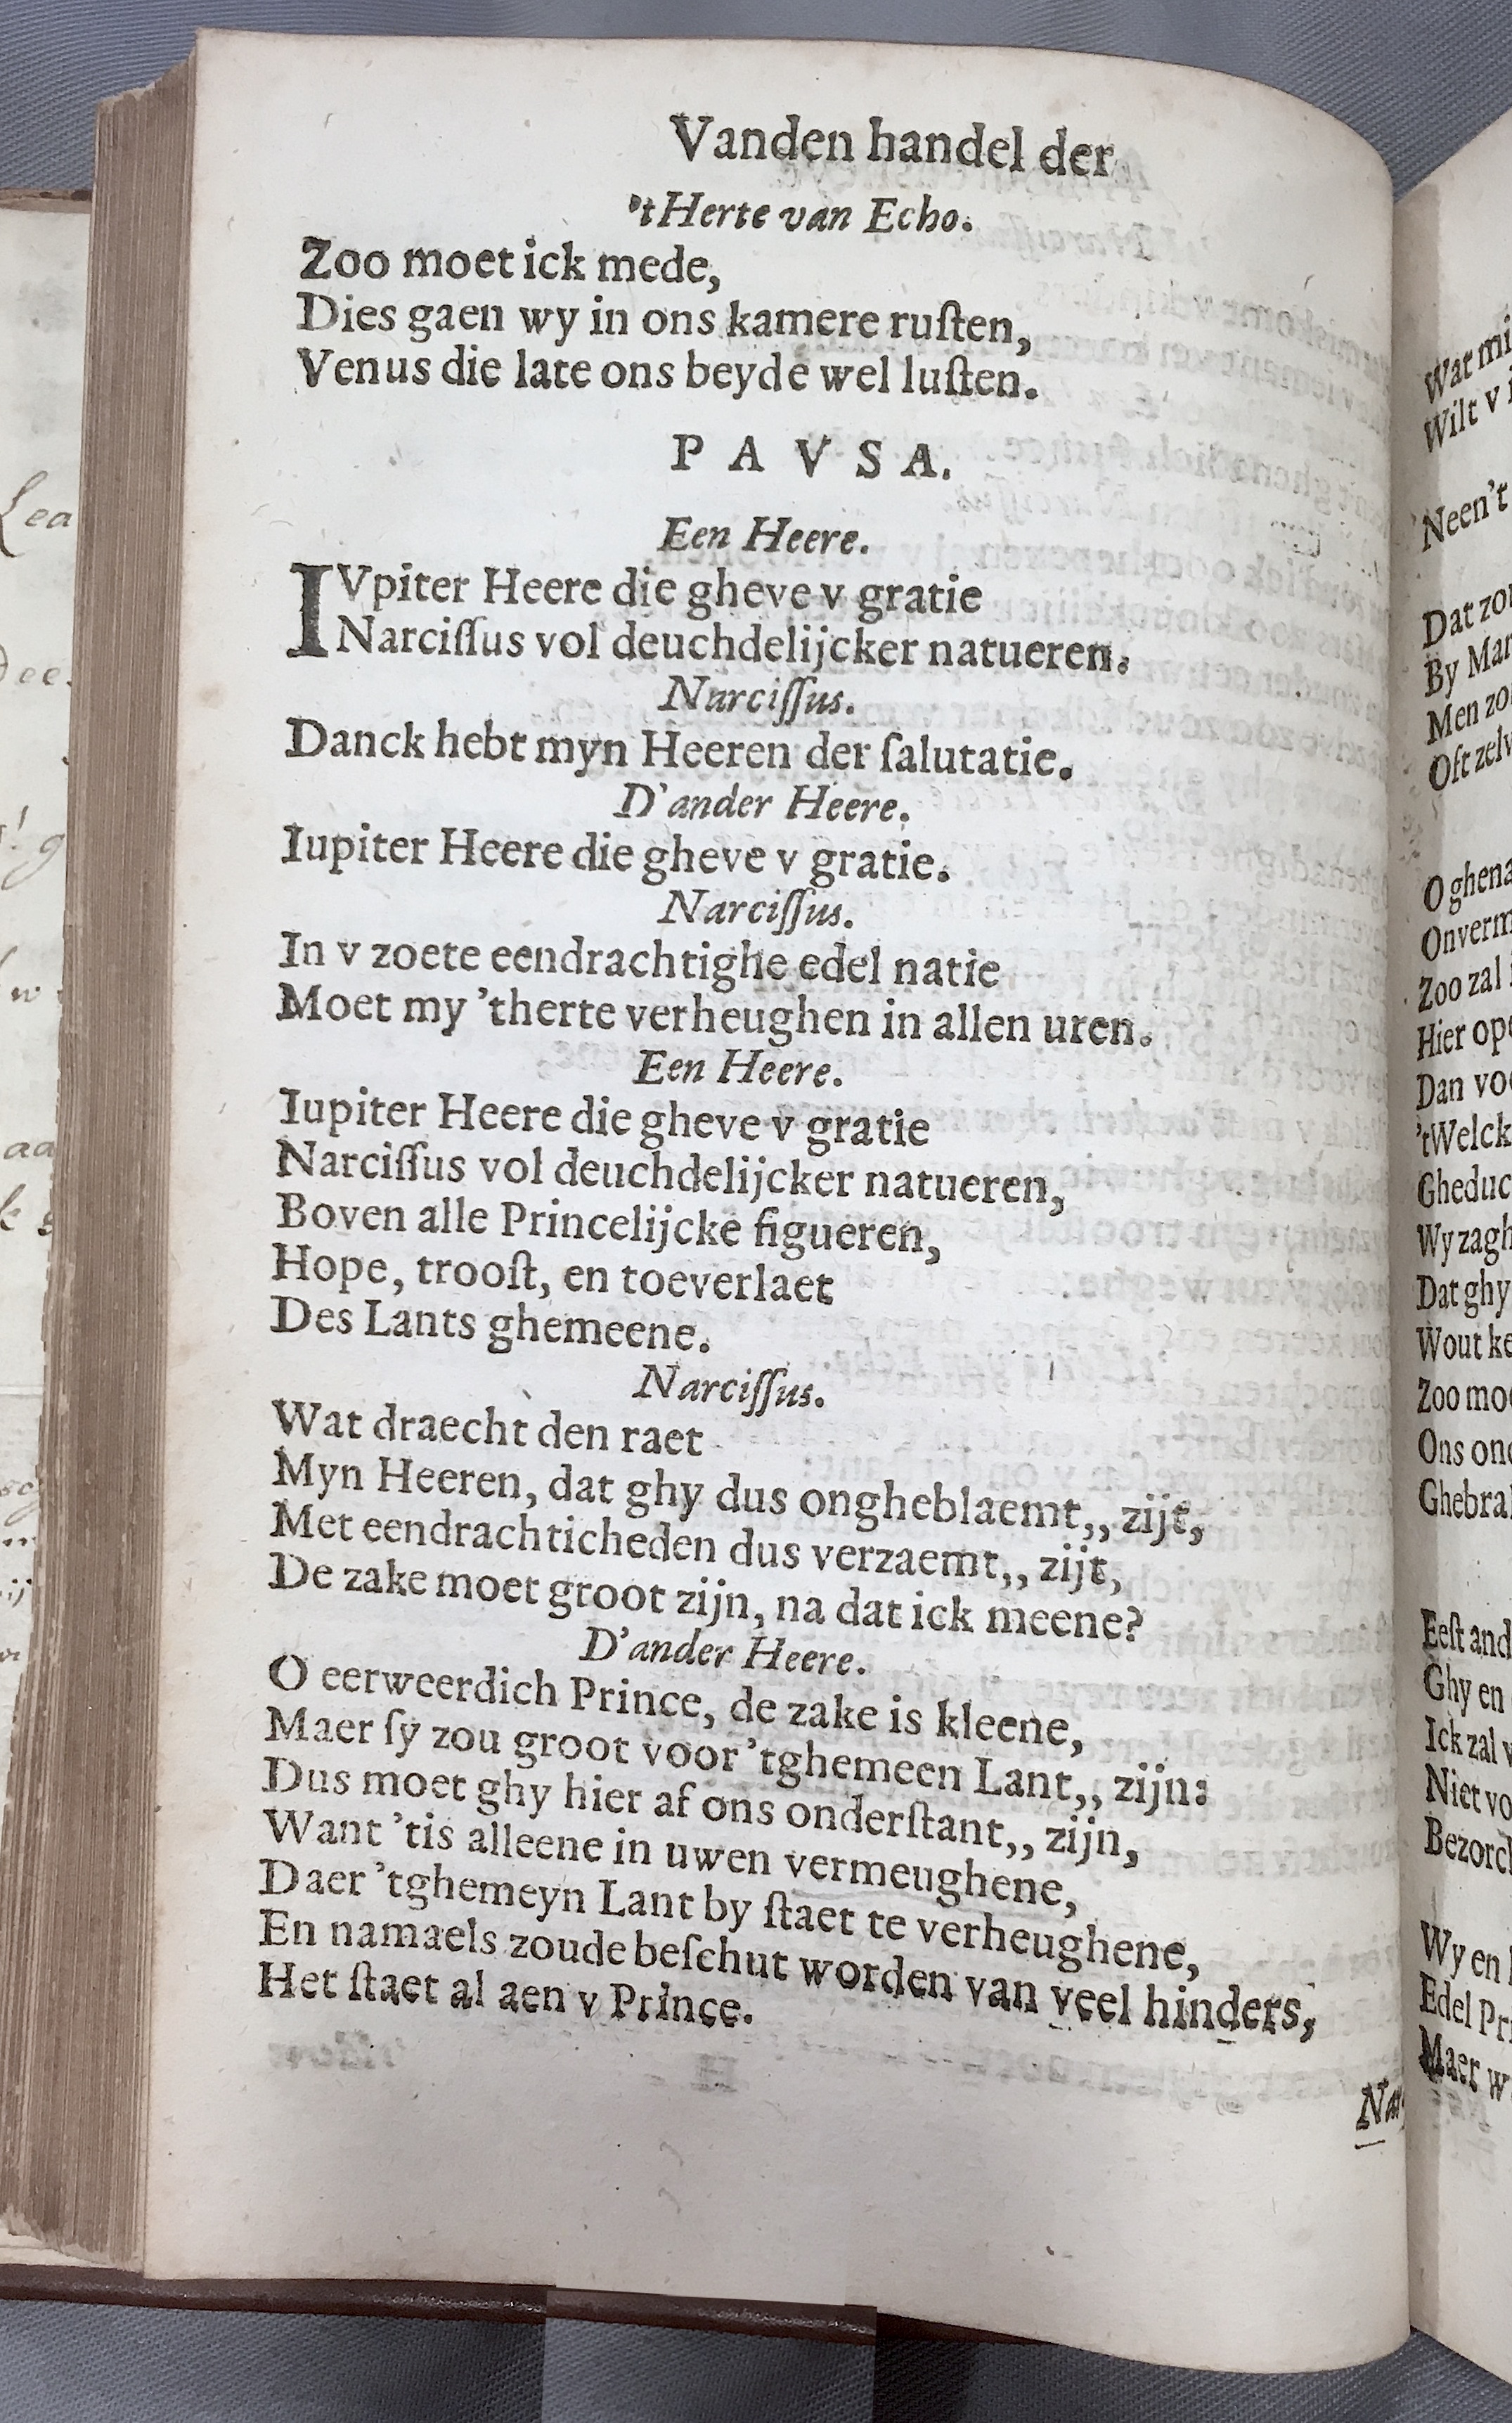 Vanden handel der
'tHerte van Echo.
Zoo moet ick mede,
Dies gaen wy in ons kamere ruſten,
Venus die late ons beyde wel luſten.
P A V S A.
Een Heere.
IVpiter Heere die gheve v gratie
Narciſſus vol deuchdelijcker natueren.
Narciſſus.
Danck hebt myn Heeren der ſalutatie.
D'ander Heere.
Iupiter Heere die gheve v gratie.
Narciſſus.
In v zoete eendrachtighe edel natie
Moet my 'therte verheughen in allen uren.
Een Heere.
Iupiter Heere die gheve v gratie
Narciſſus vol deuchdelijcker natueren,
Boven alle Princelijcke figueren,
Hope, trooſt, en toeverlaet
Des Lants ghemeene.
Narciſſus.
Wat draecht den raet
Myn Heeren, dat ghy dus ongheblaemt,, zijt,
Met eendrachticheden dus verzaemt,, zijt,
De zake moet groot zijn, na dat ick meene?
D'ander Heere.
O eerweerdich Prince, de zake is kleene,
Maer ſy zou groot voor 'tghemeen Lant,, zijn:
Dus moet ghy hier af ons onderſtant,, zijn,
Want 'tis alleene in uwen vermeughene,
Daer 'tghemeyn Lant by ſtaet te verheughene,
En namaels zoude beſchut worden van veel hinders,
Het ſtaet al aen v Prince.
Wat
Wilt v
Neen't
Dat
By
Men
Oft
O
Zoo zal
Hier
Dan
'tWelck
Wy
Dat ghy
Wout
Zoo
Ons
Eeſt
Ghy en
Ick zal
Niet
Wy en
Edel
Maer